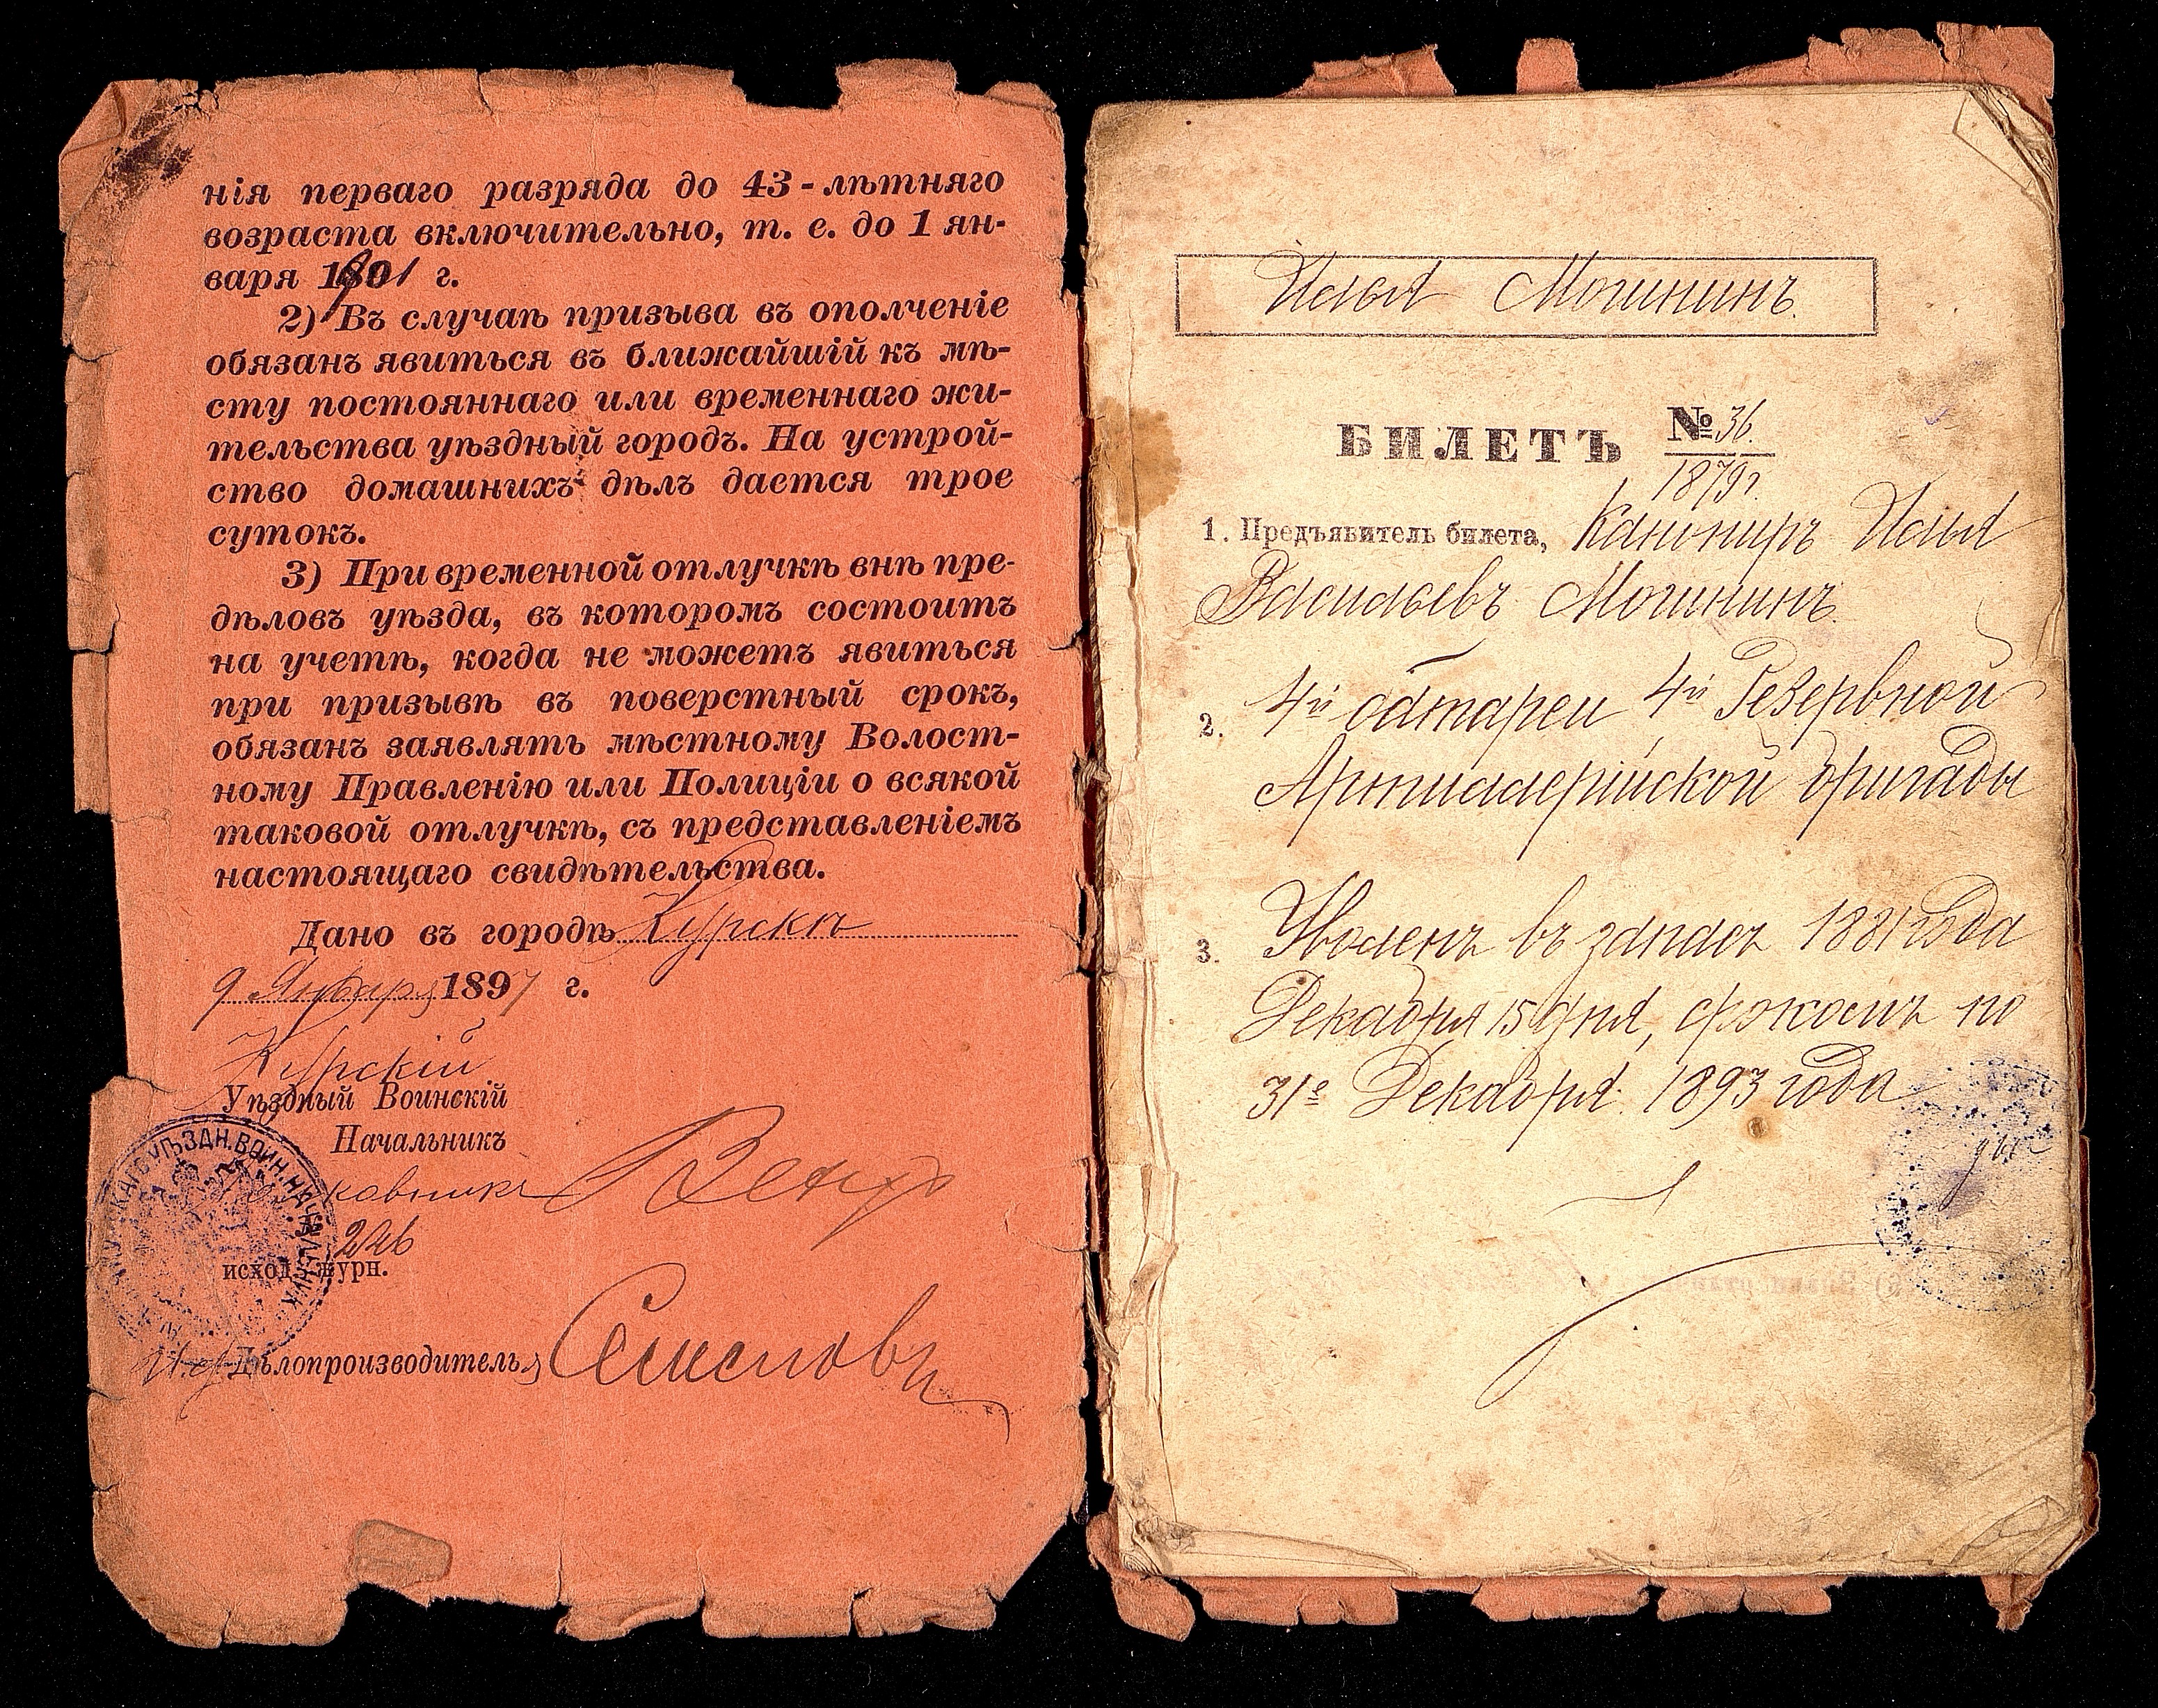 нія перваго разряда до 43-лѣтняго
возраста включительно, т. е. до 1 ян-
варя 1901 г.
2) Въ случаѣ призыва въ ополченіе
обязанъ явиться въ ближайшій къ мѣ-
сту постояннаго или временнаго жи-
тельства уѣздный городъ. На устрой-
ство домашнихъ дѣлъ дается трое
сутокъ.
3) При временной отлучкѣ внѣ пре-
дѣловъ уѣзда, въ которомъ состоитъ
на учетѣ, когда не можетъ явиться
при призывѣ въ поверстный срокъ,
обязанъ заявлять мѣстному Волост-
ному Правленію или Полиціи о всякой
таковой отлучкѣ, съ представленіемъ
настоящаго свидѣтельства.
Дано въ городѣ Курскѣ
9 Января 1897 г.
Курскій
Уѣздный Воинскій
Начальникъ
Полковникъ
246
исход. журн.
И. д. Дѣлопроизводителя Семеновъ
Илья Мошнинъ.
БИЛЕТЪ № 36.
1879 г.
1. Предъявитель билета, Канониръ Илья
Васильевъ Мошнинъ.
2. 4й батареи 4й Резервной
Артиллерійской бригады
3. Уволенъ въ запасъ 1881 года
Декабря 15 дня, срокомъ по
31е Декабря 1893 года